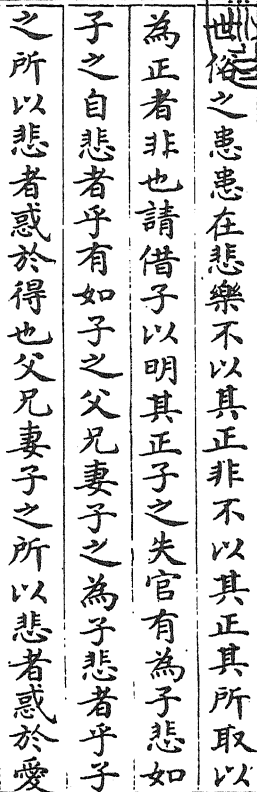 世俗之患患在悲樂不以其正非不以其正其所取以
為正者非也請借子以明其正子之失官有為子悲如
子之自悲者乎有如子之父兄妻子之為子悲者乎子
之所以悲者惑於得也父兄妻子之所以悲者惑於愛